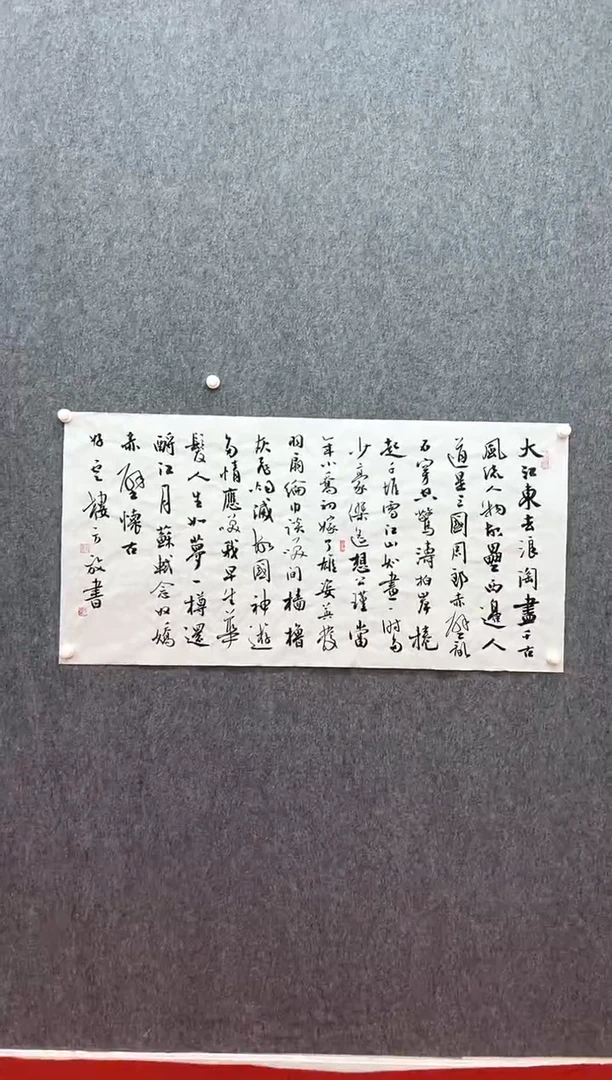 大江東去浪淘盡千古
風流人物故壘西邊人
道是三國周郎赤壁亂
石穿空驚濤拍岸捲
起千堆雪江山如畫一時多
少豪傑遙想公瑾當
年小喬初嫁了雄姿英發
羽扇綸巾談笑間檣櫓
灰飛烟滅故國神遊
多情應笑我早生華
髮人生如夢一樽還
酹江月蘇軾念奴嬌
赤壁懷古
書